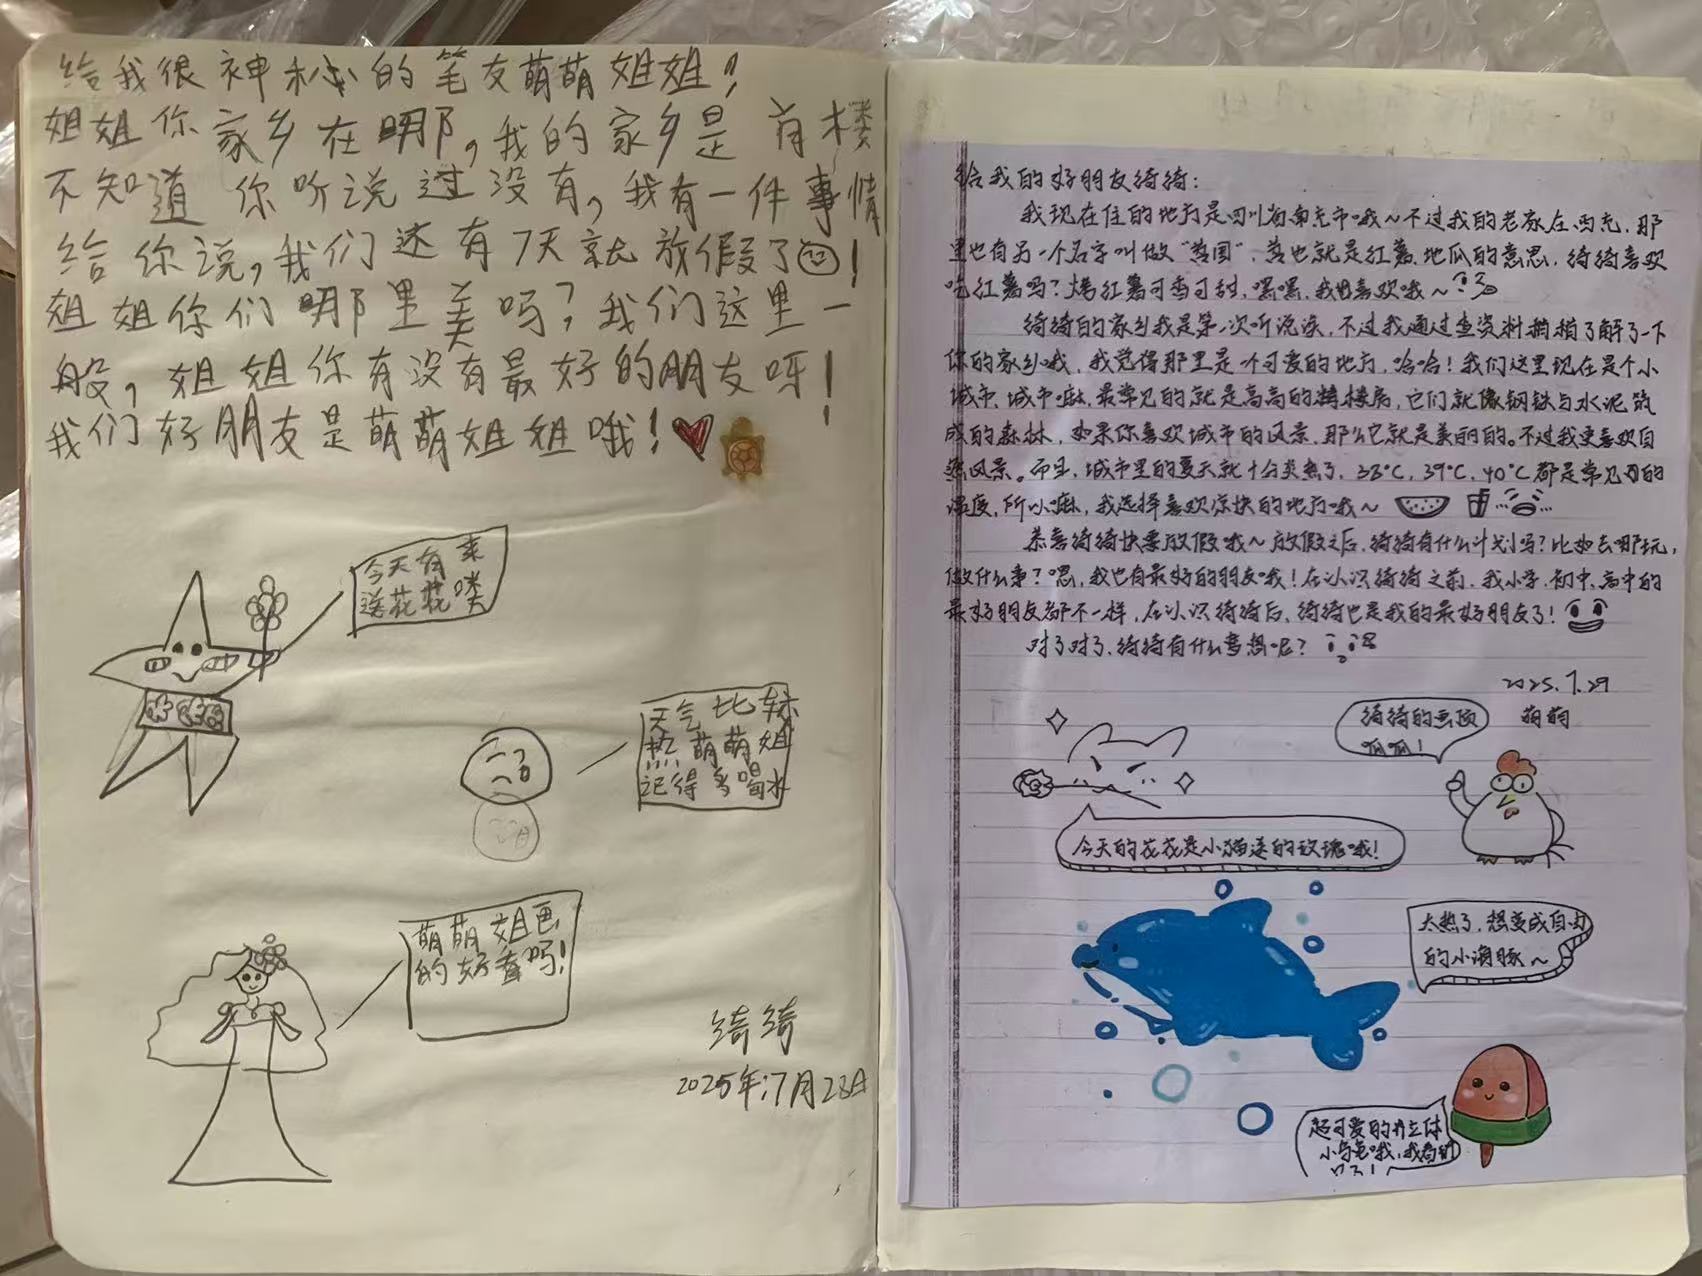 给我很神秘的笔友萌萌姐姐!
姐姐你家乡在哪,我的家乡是育楼
不知道你听说过没有,我有一件事情
给你说,我们还有7天就放假了!
姐姐你们那里美吗?我们这里一
般,姐姐你有没有最好的朋友呀!
我们好朋友是萌萌姐姐哦!
今天有来
送花花喽
天气比较
热萌萌姐
记得多喝水
萌萌姐画
的好看吗!
绮绮
2025年7月28日
给我的好朋友绮绮:
我现在住的地方是四川省南充市哦~不过我的老家在西充,那
里也有另一个名字叫做“苕国”,苕也就是红薯、地瓜的意思,绮绮喜欢
吃红薯吗?烤红薯可香可甜,嘿嘿,我也喜欢哦~
绮绮的家乡我是第一次听说诶,不过我通过查资料稍稍了解了一下
你的家乡哦,我觉得那里是个可爱的地方,哈哈!我们这里现在是个小
城市,城市嘛,最常见的就是高高的楼房,它们就像钢铁与水泥筑
成的森林,如果你喜欢城市的风景,那么它就是美丽的。不过我更喜欢自
然风景。而且,城市里的夏天就十分炎热了,38℃,39℃,40℃都是常见的
温度,所以嘛,我选择喜欢凉快的地方哦~
恭喜绮绮快要放假哦~放假之后,绮绮有什么计划吗?比如去哪玩,
做什么事?嗯,我也有最好的朋友哦!在认识绮绮之前,我小学、初中、高中的
最好朋友都不一样,在认识绮绮后,绮绮也是我的最好朋友了!
对了对了,绮绮有什么梦想呢?
2025.7.29
萌萌
绮绮的画顶
呱呱!
今天的花花是小猫送的玫瑰哦!
太热了,想变成自由
的小海豚~
超可爱的立体
小乌龟哦,我看到